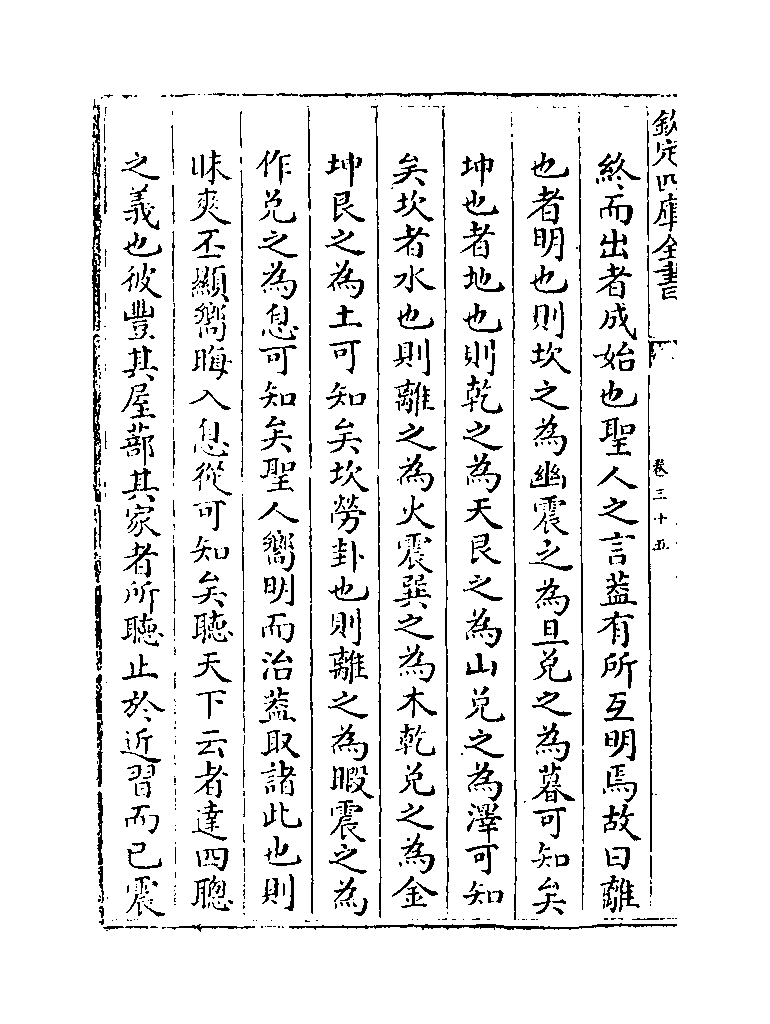 欽定四庫全書
卷三十五
終而出者成始也聖人之言葢有所互明焉故曰離
也者明也則坎之為幽震之為旦兌之為暮可知矣
坤也者地也則乾之為天艮之為山兌之為澤可知
矣坎者水也則離之為火震巽之為木乾兌之為金
坤艮之為土可知矣坎勞卦也則離之為暇震之為
作兌之為息可知矣聖人嚮明而治葢取諸此也則
昧爽丕顯嚮晦入息從可知矣聽天下云者達四聰
之義也彼豐其屋蔀其家者所聽止於近習而已震